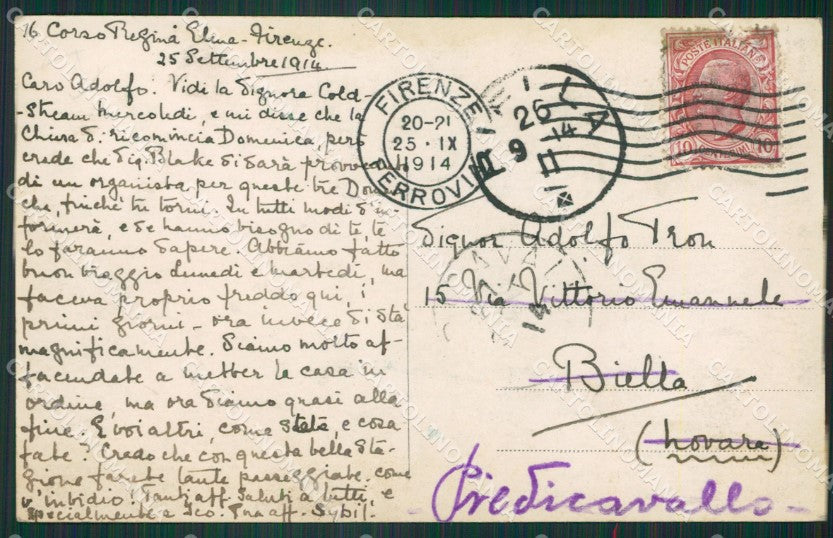 16 Corso Regina Elena - Firenze.
25 Settembre 1914
Caro Adolfo. Vidi la Signora Cold-
-Stream mercoledi, e mi disse che la
Chiesa si ricomincia Domenica, però
crede che Sig. Blake si sarà provveduto
di un organista per queste tre Dom
che, finchè tu torni. In tutti modi s'in-
formerà, e se hanno bisogno di te, te
lo faranno sapere. Abbiamo fatto
buon viaggio Lunedi e martedi, ma
faceva proprio freddo qui, i
primi giorni - ora invece si sta
magnificamente. Siamo molto af-
faccendate a metter la casa in
ordine, ma ora siamo quasi alla
fine. E voi altri, come state, e cosa
fate? Credo che con questa bella sta-
gione farete tante passeggiate. come
v'invidio. Tanti aff. saluti a tutti, e
specialmente a Tua aff. Sybil.
FIRENZE
20-21
25·IX
1914
FERROVIA
26
9 14
POSTE ITALIANE
10 10
Signor Adolfo Tron
15 Via Vittorio Emanuele
Biella
(Novara)
Piedicavallo
CARTOLINOMANIA